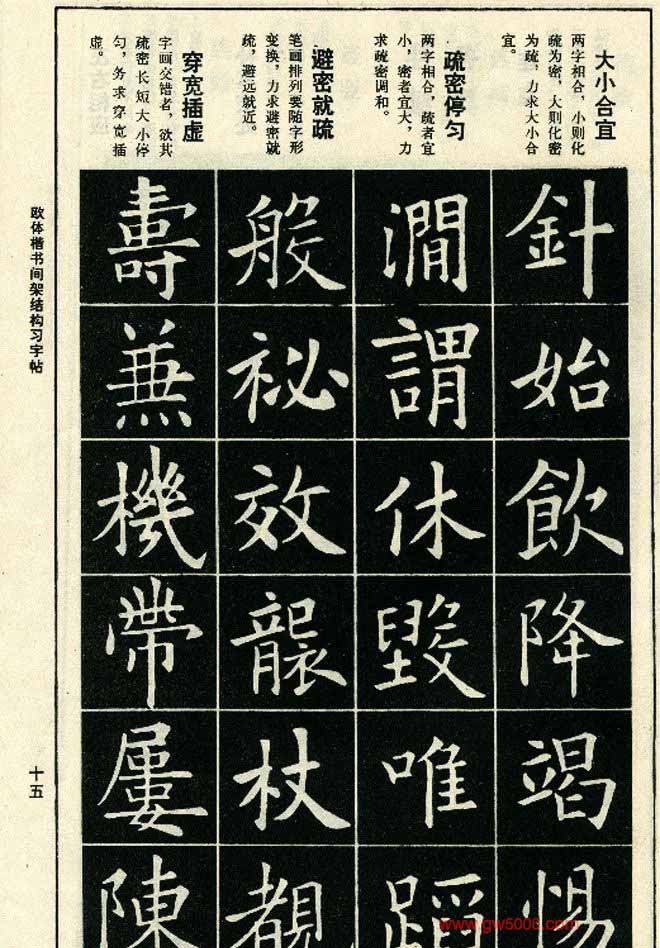 大小合宜
两字相合，小则化
疏为密，大则化密
为疏，力求大小合
宜。
針始飲降竭惕
疏密停匀
两字相合，疏者宜
小，密者宜大，力
求疏密调和。
澗謂休毀唯蹈
避密就疏
笔画排列要随字形
变换，力求避密就
疏，避远就近。
般祕效襲杖
穿宽插虚
字画交错者，欲其
疏密长短大小停
匀，务求穿宽插
虚。
壽兼機帶屢陳
欧体楷书间架结构习字帖
十五
www.gw5000.com